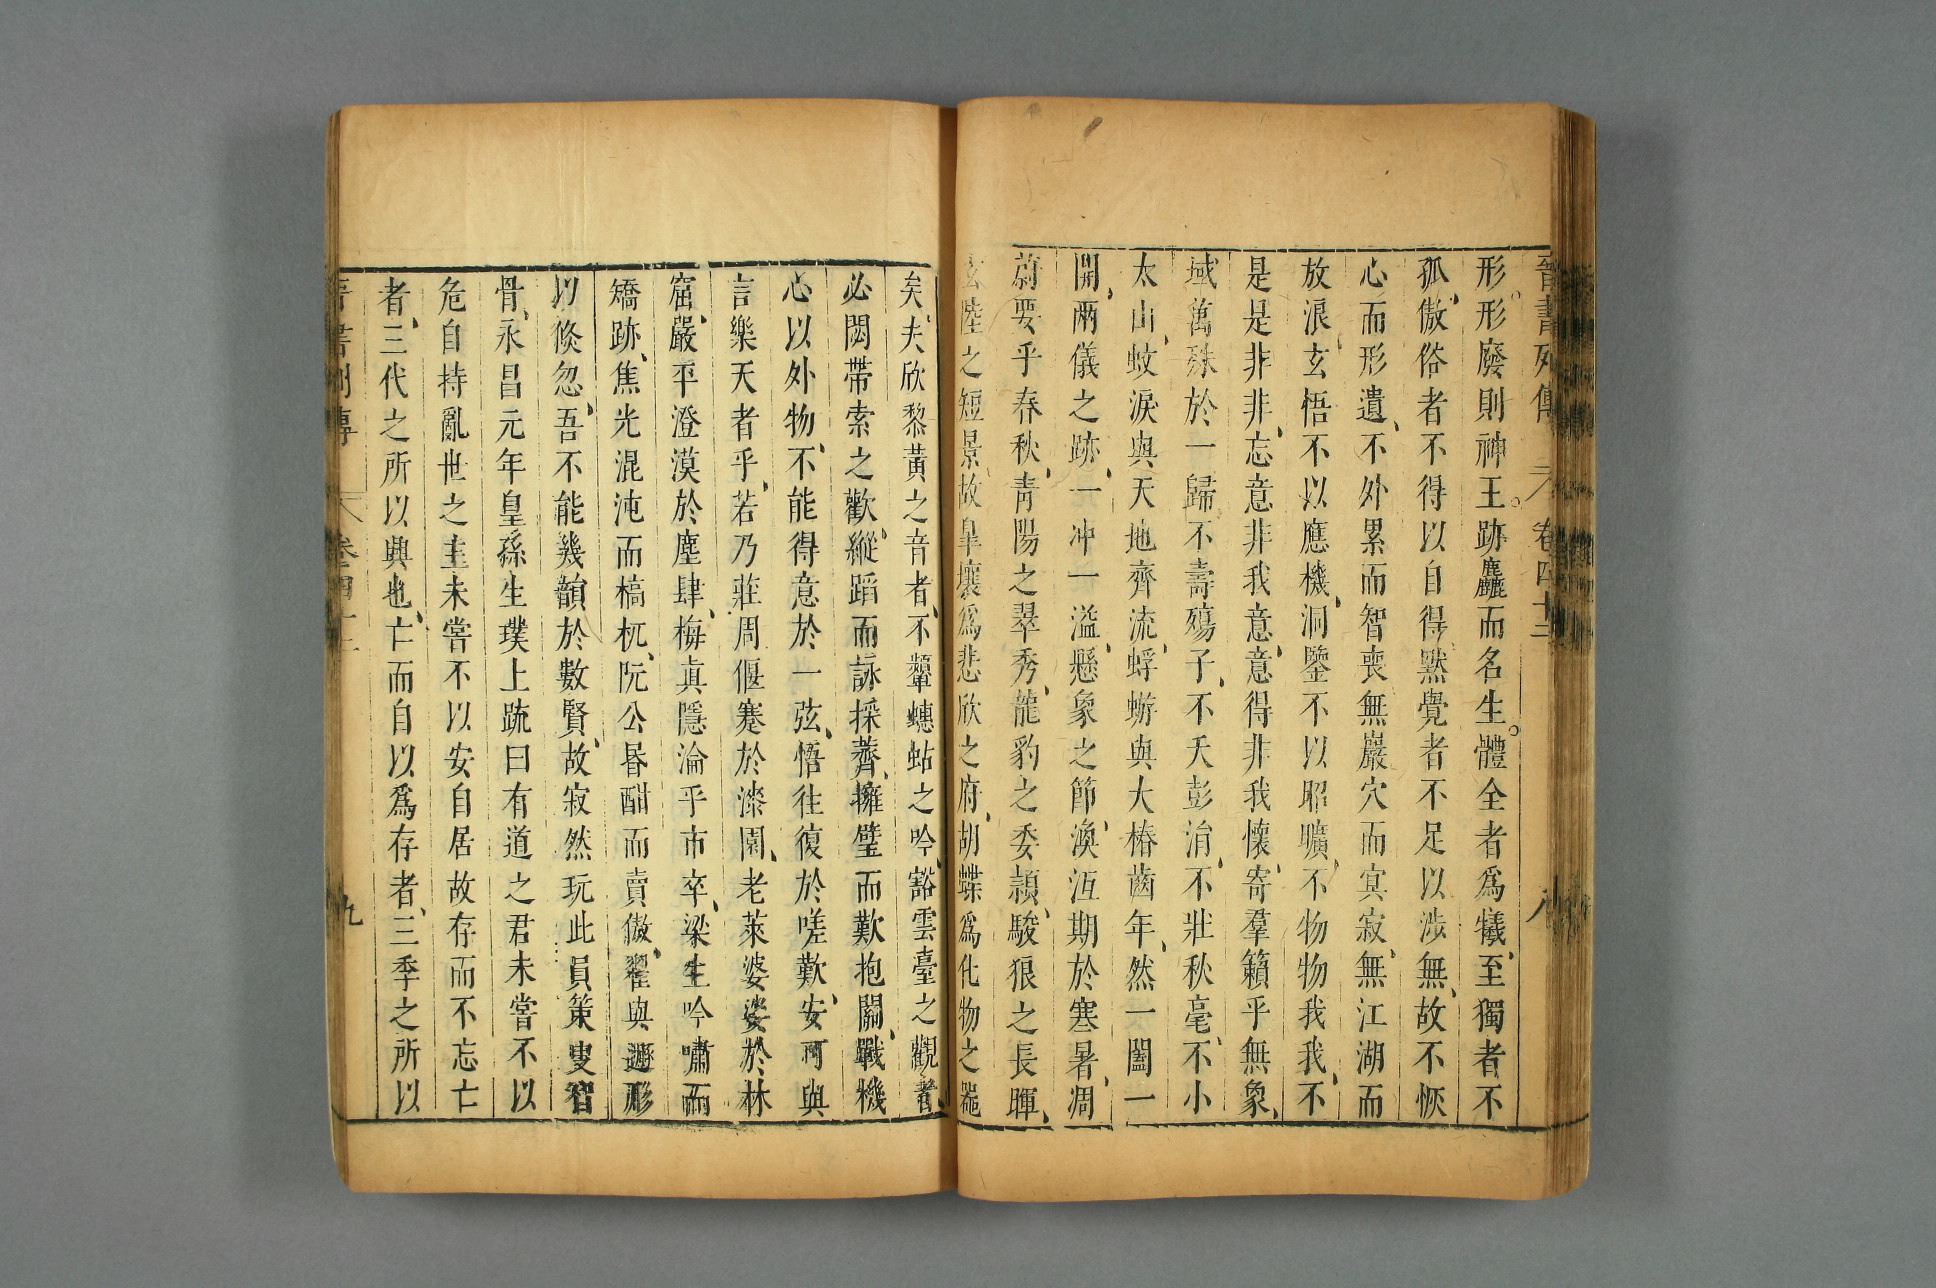 晉書列傳 卷四十二 八
形形廢則神王跡麤而名生體全者爲犧至獨者不
孤傲俗者不得以自得默覺者不足以涉無故不恢
心而形遺不外累而智喪無巖穴而冥寂無江湖而
放浪玄悟不以應機洞鑒不以昭曠不物物我我不
是是非非忘意非我意意得非我懷寄羣籟乎無象
域萬殊於一歸不壽殤子不夭彭涓不壯秋毫不小
太山蚊淚與天地齊流蜉蝣與大椿齒年然一闔一
開兩儀之跡一冲一溢懸象之節渙沍期於寒暑凋
蔚要乎春秋青陽之翠秀龍豹之委頴駿狼之長暉
玄陸之短景故臯壤爲悲欣之府胡蝶爲化物之器
矣夫欣黎黃之音者不顰蟪蛄之吟豁雲臺之觀者
必閟帶索之歡縱蹈而詠採薺擁璧而歎抱關戰機
心以外物不能得意於一弦悟往復於嗟歎安可與
言樂天者乎若乃莊周偃蹇於漆園老萊婆娑於林
窟嚴平澄漠於塵肆梅眞隱淪乎市卒梁生吟嘯而
矯跡焦光混沌而槁杌阮公昏酣而賣傲翟與遯形
以倐忽吾不能幾韻於數賢故寂然玩此員策叟智
骨永昌元年皇孫生璞上疏曰有道之君未嘗不以
危自持亂世之主未嘗不以安自居故存而不忘亡
者三代之所以興也亡而自以爲存者三季之所以
晉書列傳 卷四十二 九